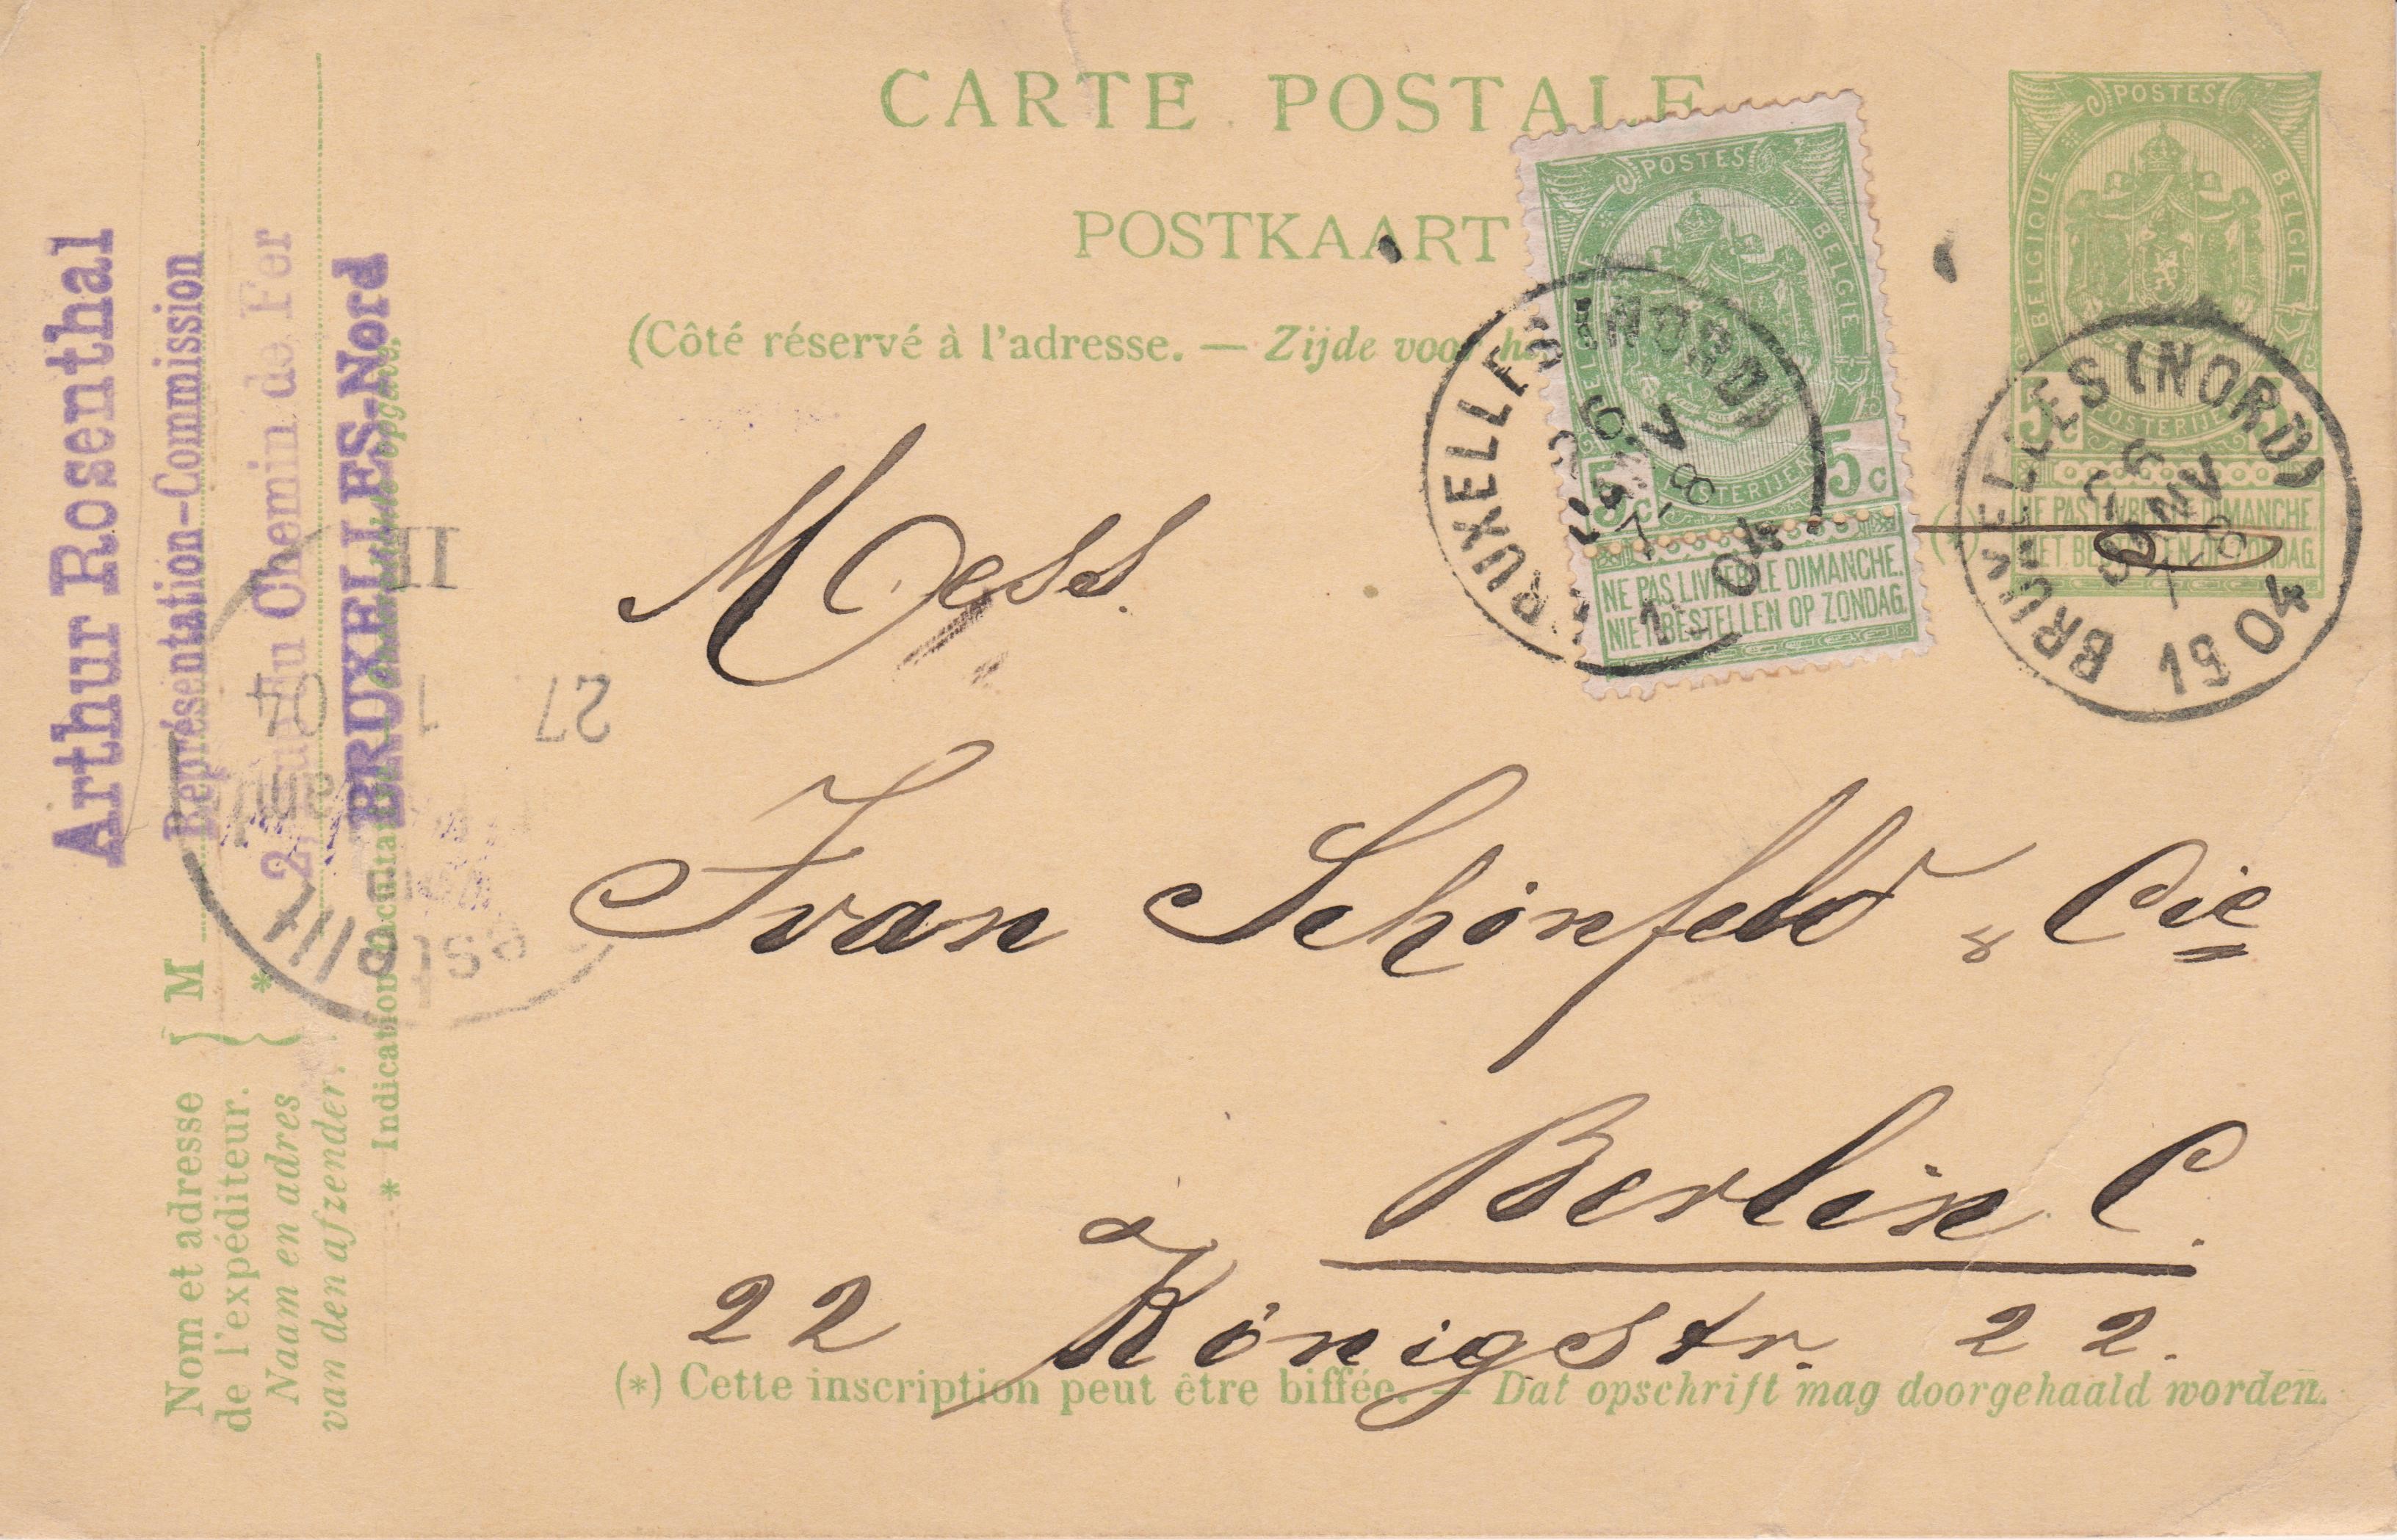 CARTE POSTALE
POSTKAART
(Côté réservé à l'adresse. — Zijde voor he
POSTES
BELGIQUE BELGIE
POSTERIJEN
5c 5c
NE PAS LIVRER LE DIMANCHE.
NIET BESTELLEN OP ZONDAG.
BRUXELLES (NORD)
1904
POSTES
BELGIQUE BELGIE
POSTERIJEN
5c
NE PAS LIVRER LE DIMANCHE.
NIET BESTELLEN OP ZONDAG.
BRUXELLES (NORD)
JANV
1904
Arthur Rosenthal
Représentation-Commission
2, Rue du Chemin de Fer
BRUXELLES-Nord
M
*
Nom et adresse
de l'expéditeur.
Naam en adres
van den afzender.
* Indication facultative. opgave.
27 1 04
Mess.
Ivan Schönfeld & Cie
Berlin C.
22 Königstr. 22.
(*) Cette inscription peut être biffée. — Dat opschrift mag doorgehaald worden.